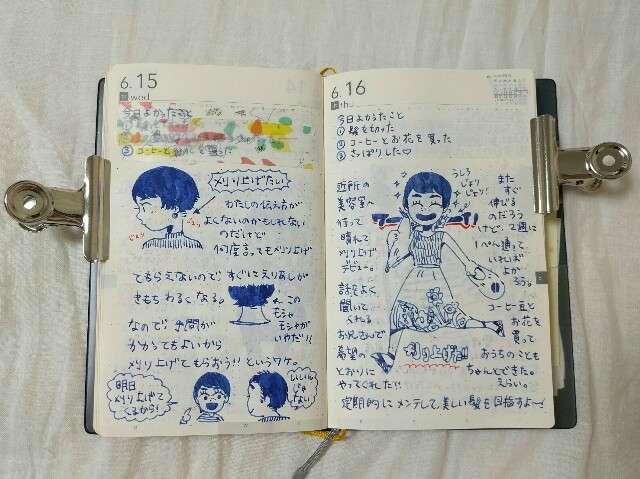 6.15
wed
今日よかったこと
③ コーヒーと
刈り上げたい
わたしの伝え方が
よくないのかもしれない
のだけど
何度言っても刈り上げ
てもらえないので!すぐにえりあしが
きもちわるくなる。
←この
モシャ
モシャが
いやだ!!
なので!手間が
かかってもよいから
刈り上げてもらおう!!というワケ。
明日
刈り上げて
くるから!
いいん
じゃ
ない
6.16
thu
今日よかったこと
① 髪を切った
② コーヒーとお花を買った
③ さっぱりした♡
近所の
美容室へ
行って
晴れて
刈り上げ
デビュー。
話をよく
聞いて
くれる
お兄さんで
希望の
とおりに
やってくれた!!
うしろ
じょり
じょり!
刈り上げた!!
また
すぐ
伸びる
のだろう
けど、2週に
1ぺん通って
いればば
よか
ろう。
コーヒー豆と
お花を
買って
おうちのことも
ちゃんとできた。
えらい。
定期的にメンテして、美しい髪を目指すよ〜!